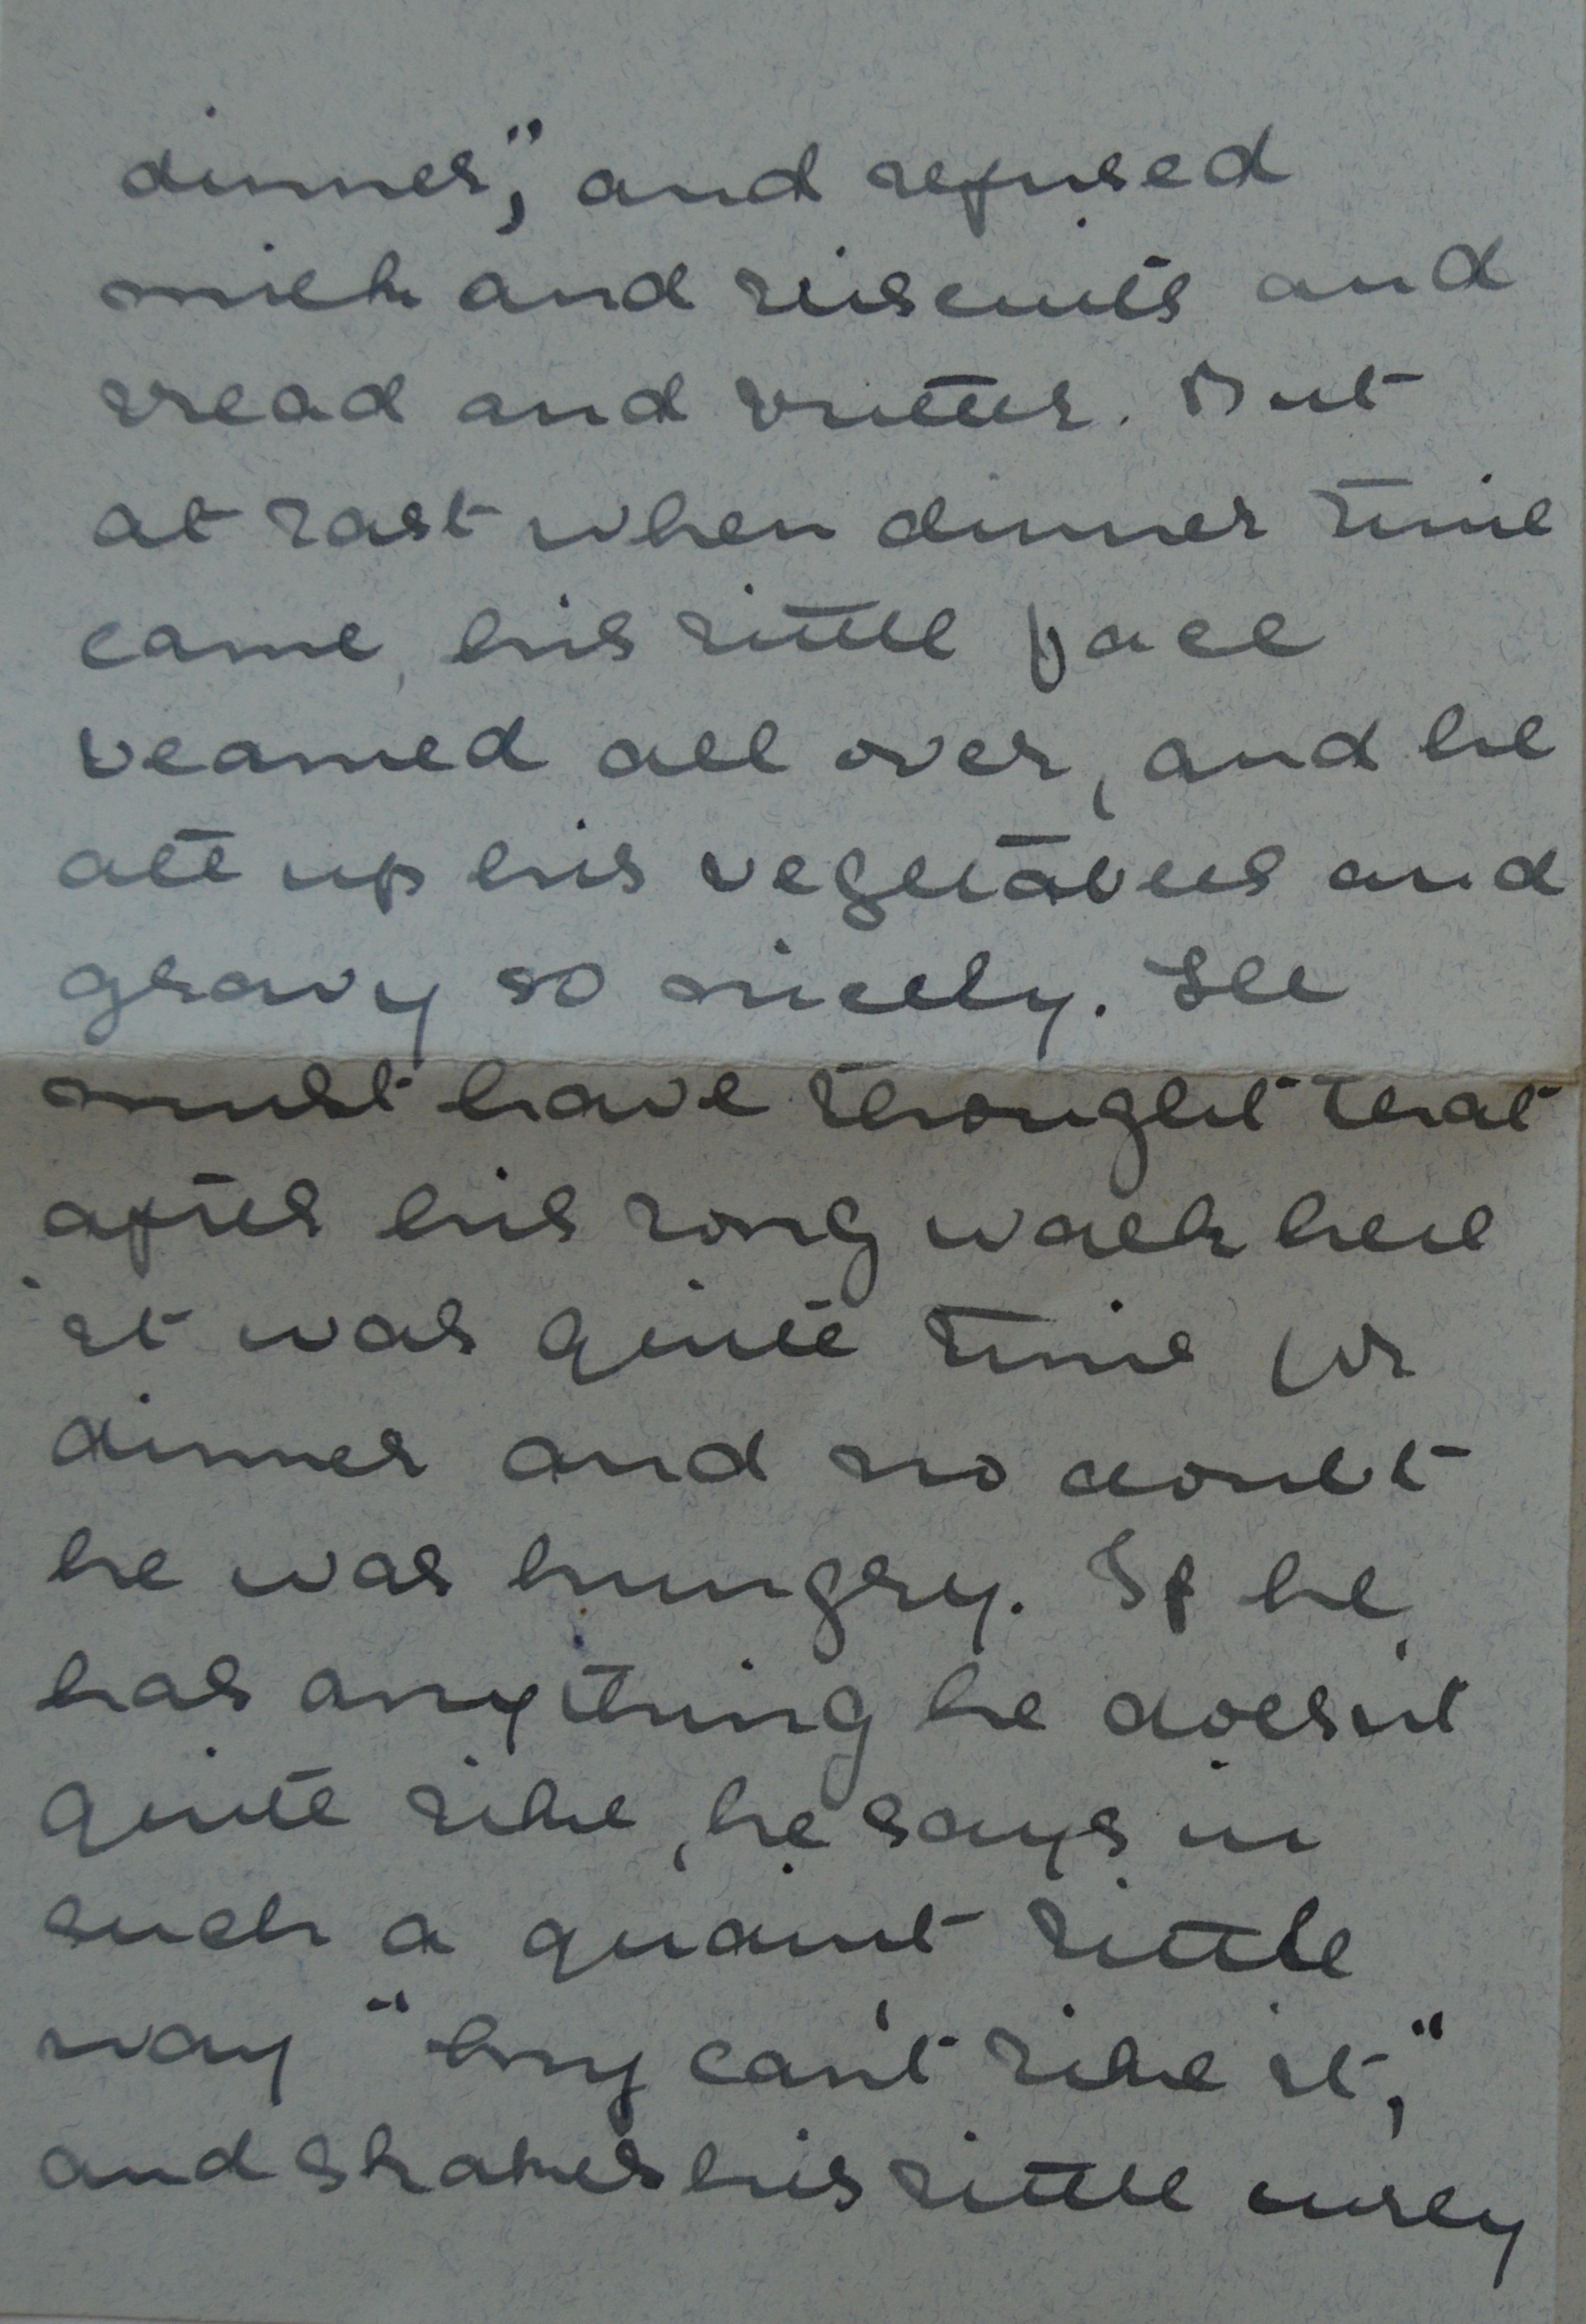 dinner," and refused
milk and biscuits and
bread and butter. But
at last when dinner time
came, his little face
beamed all over, and he
ate up his vegetables and
gravy so nicely. He
must have thought that
after his long walk here
it was quite time for
dinner and no doubt
he was hungry. If he
has anything he doesn't
quite like, he says in
such a quaint little
way "
can't like it,"
and shakes his little curly